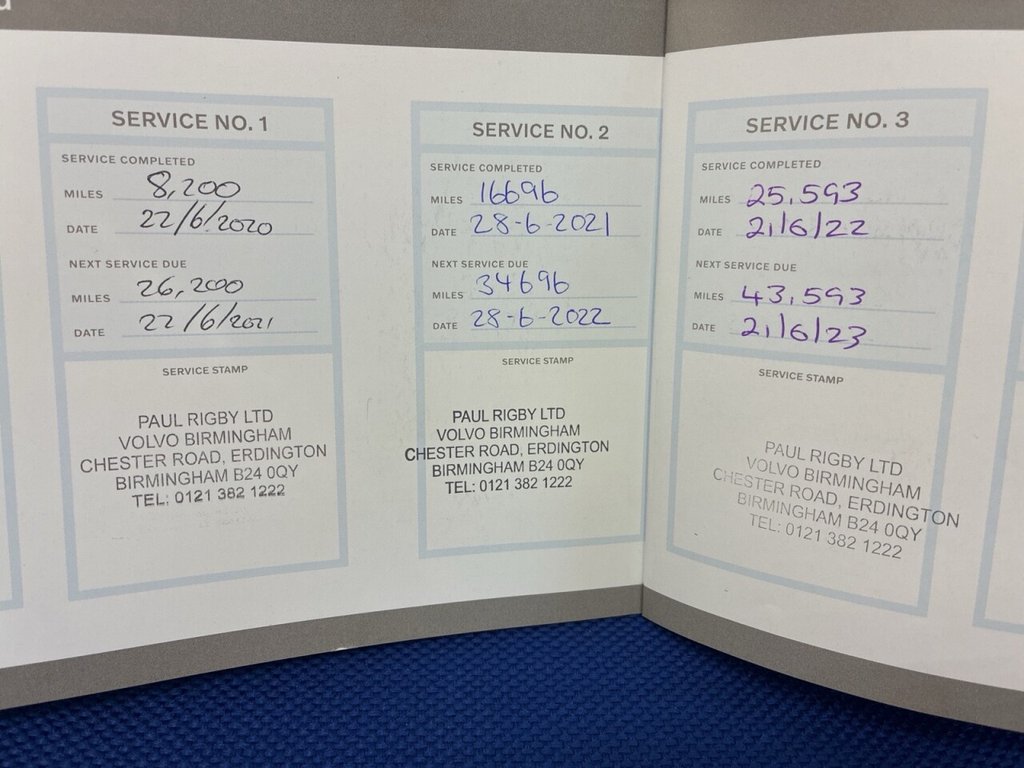 SERVICE NO. 1
SERVICE COMPLETED
MILES 8,200
DATE 22/6/2020
NEXT SERVICE DUE
MILES 26,200
DATE 22/6/2021
SERVICE STAMP
PAUL RIGBY LTD
VOLVO BIRMINGHAM
CHESTER ROAD, ERDINGTON
BIRMINGHAM B24 0QY
TEL: 0121 382 1222
SERVICE NO. 2
SERVICE COMPLETED
MILES 16696
DATE 28-6-2021
NEXT SERVICE DUE
MILES 34696
DATE 28-6-2022
SERVICE STAMP
PAUL RIGBY LTD
VOLVO BIRMINGHAM
CHESTER ROAD, ERDINGTON
BIRMINGHAM B24 0QY
TEL: 0121 382 1222
SERVICE NO. 3
SERVICE COMPLETED
MILES 25,593
DATE 21/6/22
NEXT SERVICE DUE
MILES 43,593
DATE 21/6/23
SERVICE STAMP
PAUL RIGBY LTD
VOLVO BIRMINGHAM
CHESTER ROAD, ERDINGTON
BIRMINGHAM B24 0QY
TEL: 0121 382 1222